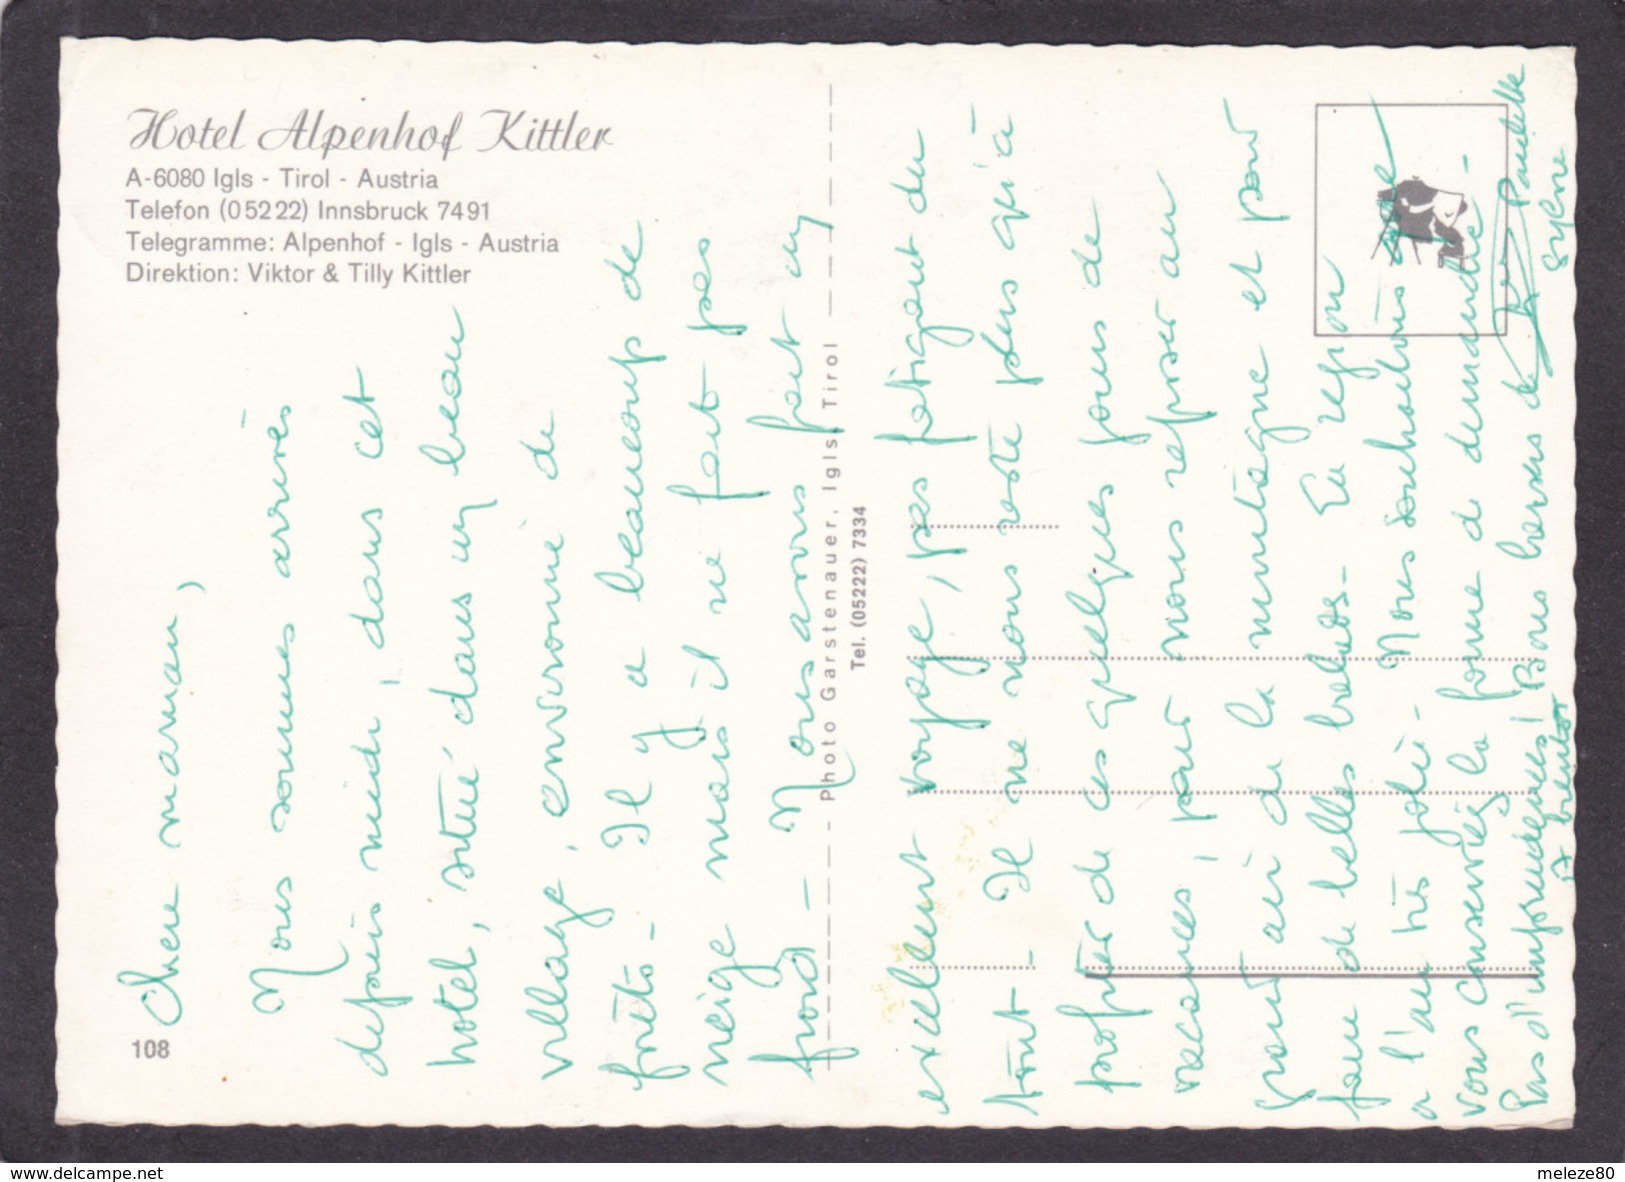 Hotel Alpenhof Kittler
A-6080 Igls - Tirol - Austria
Telefon (05222) Innsbruck 7491
Telegramme: Alpenhof - Igls - Austria
Direktion: Viktor & Tilly Kittler
108
Photo Garstenauer, Igls, Tirol
Tel. (05222) 7334
Chère maman,
Nous sommes arrivés
depuis midi, dans cet
hotel, situé dans un beau
village, environné de
forêts - Il y a beaucoup de
neige mais il ne fait pas
froid - Nous avons fait un
excellent voyage, pas fatigant du
tout - Il ne nous reste plus qu'à
profiter de ces quelques jours de
vacances, pour nous reposer au
grand air de la montagne et pour
faire de belles balades - La région
a l'air très jolie - Nous souhaitons que
vous conserviez la forme de dimanche -
Pas d'imprudences! Bons baisers de Paulette
A bientôt Sylvie
www.delcampe.net
meleze80